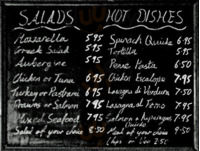 SALADS HOT DISHES
Mozzarella 5.95 Spinach Quiche 6.95
Greek Salad 5.95 Tortilla 5.95
Aubergine 5.95 Penne Pasta 6.50
Chicken or Tuna 6.95 Chicken Escalope 7.95
Turkey or Pastrami 6.95 Lasagna di Verdura 7.50
Prawns or Salmon 7.95 Lasagna al Forno 7.95
Mixed Seafood 7.95 Salmon & Asparagus 7.95
Quiche
Salad of your choice 8.50 Meal of your choice 9.50
Chips or 2.50